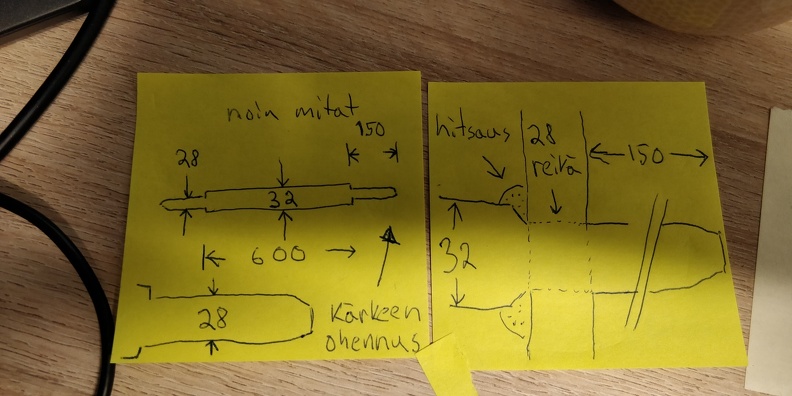 noin mitat
150
28
32
600
28
Kärkeen
ohennus
hitsaus
28
reikä
150
32